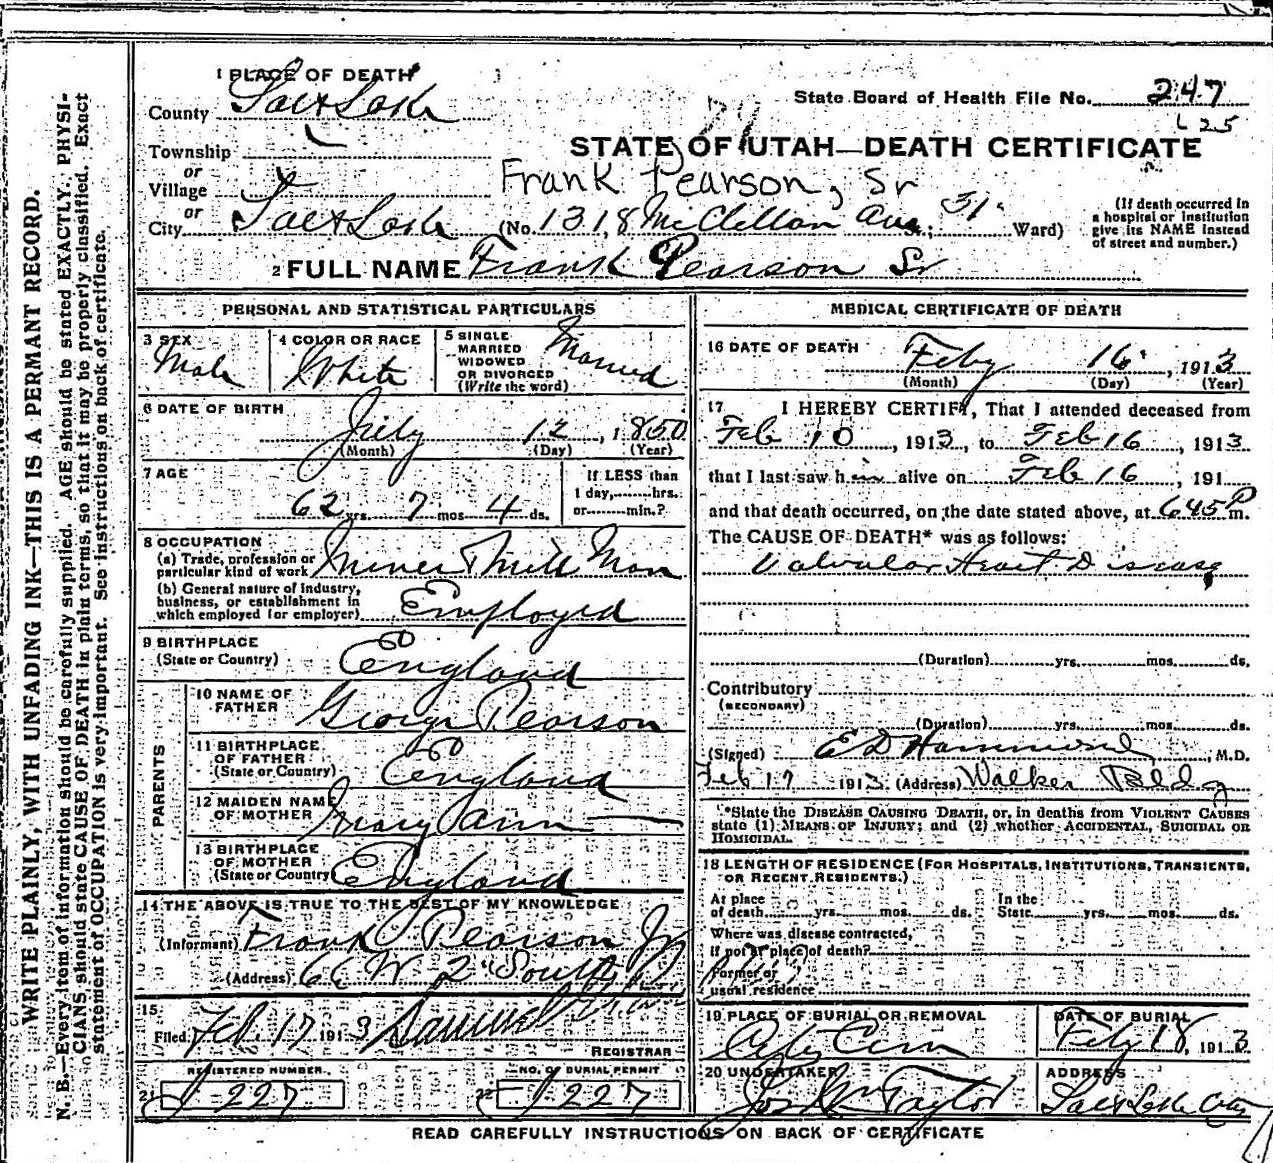 1 PLACE OF DEATH
County Salt Lake
State Board of Health File No. 247
L 25
Township
or
Village
or
STATE OF UTAH—DEATH CERTIFICATE
Frank Pearson, Sr
City Salt Lake (No. 1318 McClellan Ave; 31 Ward)
(If death occurred in
a hospital or institution
give its NAME instead
of street and number.)
2 FULL NAME Frank Pearson Sr
WRITE PLAINLY, WITH UNFADING INK—THIS IS A PERMANT RECORD.
N. B.—Every item of information should be carefully supplied. AGE should be stated EXACTLY. PHYSI-
CIANS should state CAUSE OF DEATH in plain terms, so that it may be properly classified. Exact
statement of OCCUPATION is very important. See instructions on back of certificate.
PERSONAL AND STATISTICAL PARTICULARS
3 SEX
Male
4 COLOR OR RACE
White
5 SINGLE
MARRIED
WIDOWED
OR DIVORCED
(Write the word)
Married
6 DATE OF BIRTH
July 12, 1850
(Month) (Day) (Year)
7 AGE
62 yrs. 7 mos. 4 ds.
If LESS than
1 day,........hrs.
or........min.?
8 OCCUPATION
(a) Trade, profession or
particular kind of work Miner Mill Man
(b) General nature of industry,
business, or establishment in
which employed (or employer) Employed
9 BIRTHPLACE
(State or Country) England
PARENTS
10 NAME OF
FATHER George Pearson
11 BIRTHPLACE
OF FATHER
(State or Country) England
12 MAIDEN NAME
OF MOTHER Mary Ann —
13 BIRTHPLACE
OF MOTHER
(State or Country) England
14 THE ABOVE IS TRUE TO THE BEST OF MY KNOWLEDGE
(Informant) Frank Pearson Jr
(Address) W 2 South
15
Filed Feb. 17 1913 Samuel
REGISTRAR
REGISTERED NUMBER.
21 J 227
NO. OF BURIAL PERMIT
22 J 227
MEDICAL CERTIFICATE OF DEATH
16 DATE OF DEATH
Feby 16, 1913
(Month) (Day) (Year)
17 I HEREBY CERTIFY, That I attended deceased from
Feb 10, 1913, to Feb 16, 1913
that I last saw him alive on Feb 16, 191
and that death occurred, on the date stated above, at 645 P m.
The CAUSE OF DEATH* was as follows:
Valvular Heart Disease
(Duration) yrs. mos. ds.
Contributory
(SECONDARY)
(Duration) yrs. mos. ds.
(Signed) E D Hammond, M.D.
Feb 17 1913 (Address) Walker Bldg
*State the DISEASE CAUSING DEATH, or, in deaths from VIOLENT CAUSES
state (1) MEANS OF INJURY; and (2) whether ACCIDENTAL, SUICIDAL OR
HOMICIDAL.
18 LENGTH OF RESIDENCE (FOR HOSPITALS, INSTITUTIONS, TRANSIENTS,
OR RECENT RESIDENTS.)
At place
of death yrs. mos. ds.
In the
State yrs. mos. ds.
Where was disease contracted,
if not at place of death?
Former or
usual residence
19 PLACE OF BURIAL OR REMOVAL
City Cem
DATE OF BURIAL
Feby 18, 1913
20 UNDERTAKER
Jos Wm Taylor
ADDRESS
Salt Lake City
READ CAREFULLY INSTRUCTIONS ON BACK OF CERTIFICATE